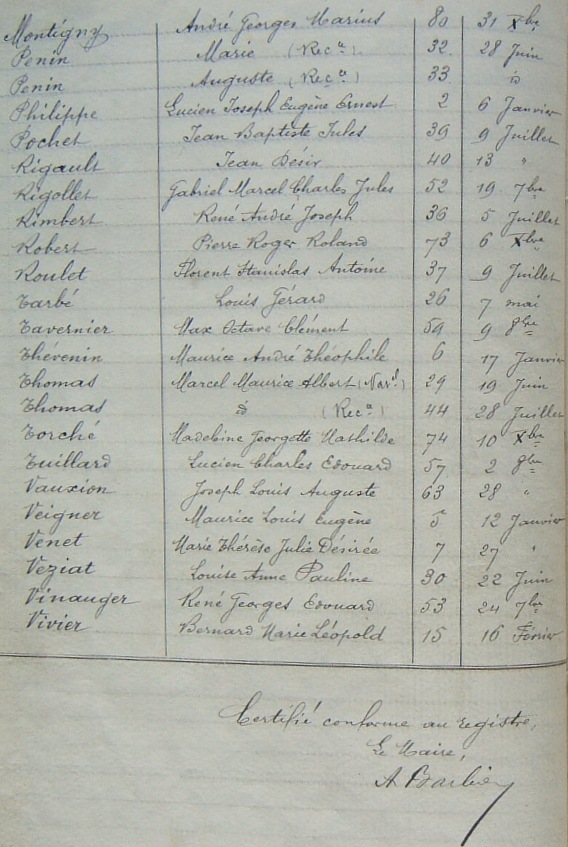 Montigny André Georges Marius 80 31 Xbre
Penin Marie (Recce) 32 28 Juin
Penin Auguste (Recce) 33 id
Philippe Lucien Joseph Eugène Ernest 2 6 Janvier
Pochet Jean Baptiste Jules 39 9 Juillet
Rigault Jean Désir 40 13 "
Rigollet Gabriel Marcel Charles Jules 52 19 7bre
Rimbert René André Joseph 36 5 Juillet
Robert Pierre Roger Roland 73 6 Xbre
Roulet Florent Stanislas Antoine 37 9 Juillet
Tarbé Louis Gérard 26 7 mai
Tavernier Max Octave Clément 59 9 8bre
Thévenin Maurice André Théophile 6 17 Janvier
Thomas Marcel Maurice Albert 29 19 Juin
Thomas d° (Recce) 44 28 Juillet
Torché Madeleine Georgette Mathilde 74 10 Xbre
Tuillard Lucien Charles Edouard 57 2 8bre
Vauxion Joseph Louis Auguste 63 28 "
Veigner Maurice Louis Eugène 5 12 Janvier
Venet Marie Thérèse Julie Désirée 7 27 "
Veziat Louise Anne Pauline 30 22 Juin
Vinauger René Georges Edouard 53 24 7bre
Vivier Bernard Marie Léopold 15 16 Février
Certifié conforme au registre,
Le Maire,
A Barbier